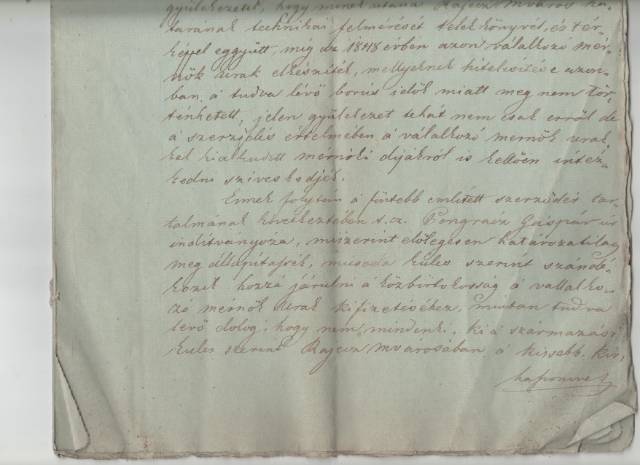 gyülekezetet, hogy minek utána Rajecz Mváros ha-
tárának technikai felmérését telekkönyvét, és tér-
képpel eggyütt, még az 1848 évben azon válalkozó mér-
nök urak elkészíték, mellyeknek hitelesitése azon-
ban a tudva lévő borus idők miatt meg nem tör-
ténhetett, jelen gyülekezet tehát nem csak erről de
a szerződés értelmében á válalkozó mérnök urak-
nak kialkudott mérnöki dijakról is kellően intéz-
kedni sziveskedjék.
Ennek folytán á föntebb emlitett szerződés tar-
talmának következtében t. cz. Pongrácz Gáspár úr
inditványozá, miszerint előlegesen határozatilag
meg állapitassék, micsoda kulcs szerint szándé-
kozik hozzá járulni á közbirtokosság á vállalko-
zó mérnök Urak kifizetéséhez, miután tudva
lévő dolog, hogy nem mindenki, ki á származási
kulcs szerint Rajecz Mvárosában á kissebb kir.
haszonvét